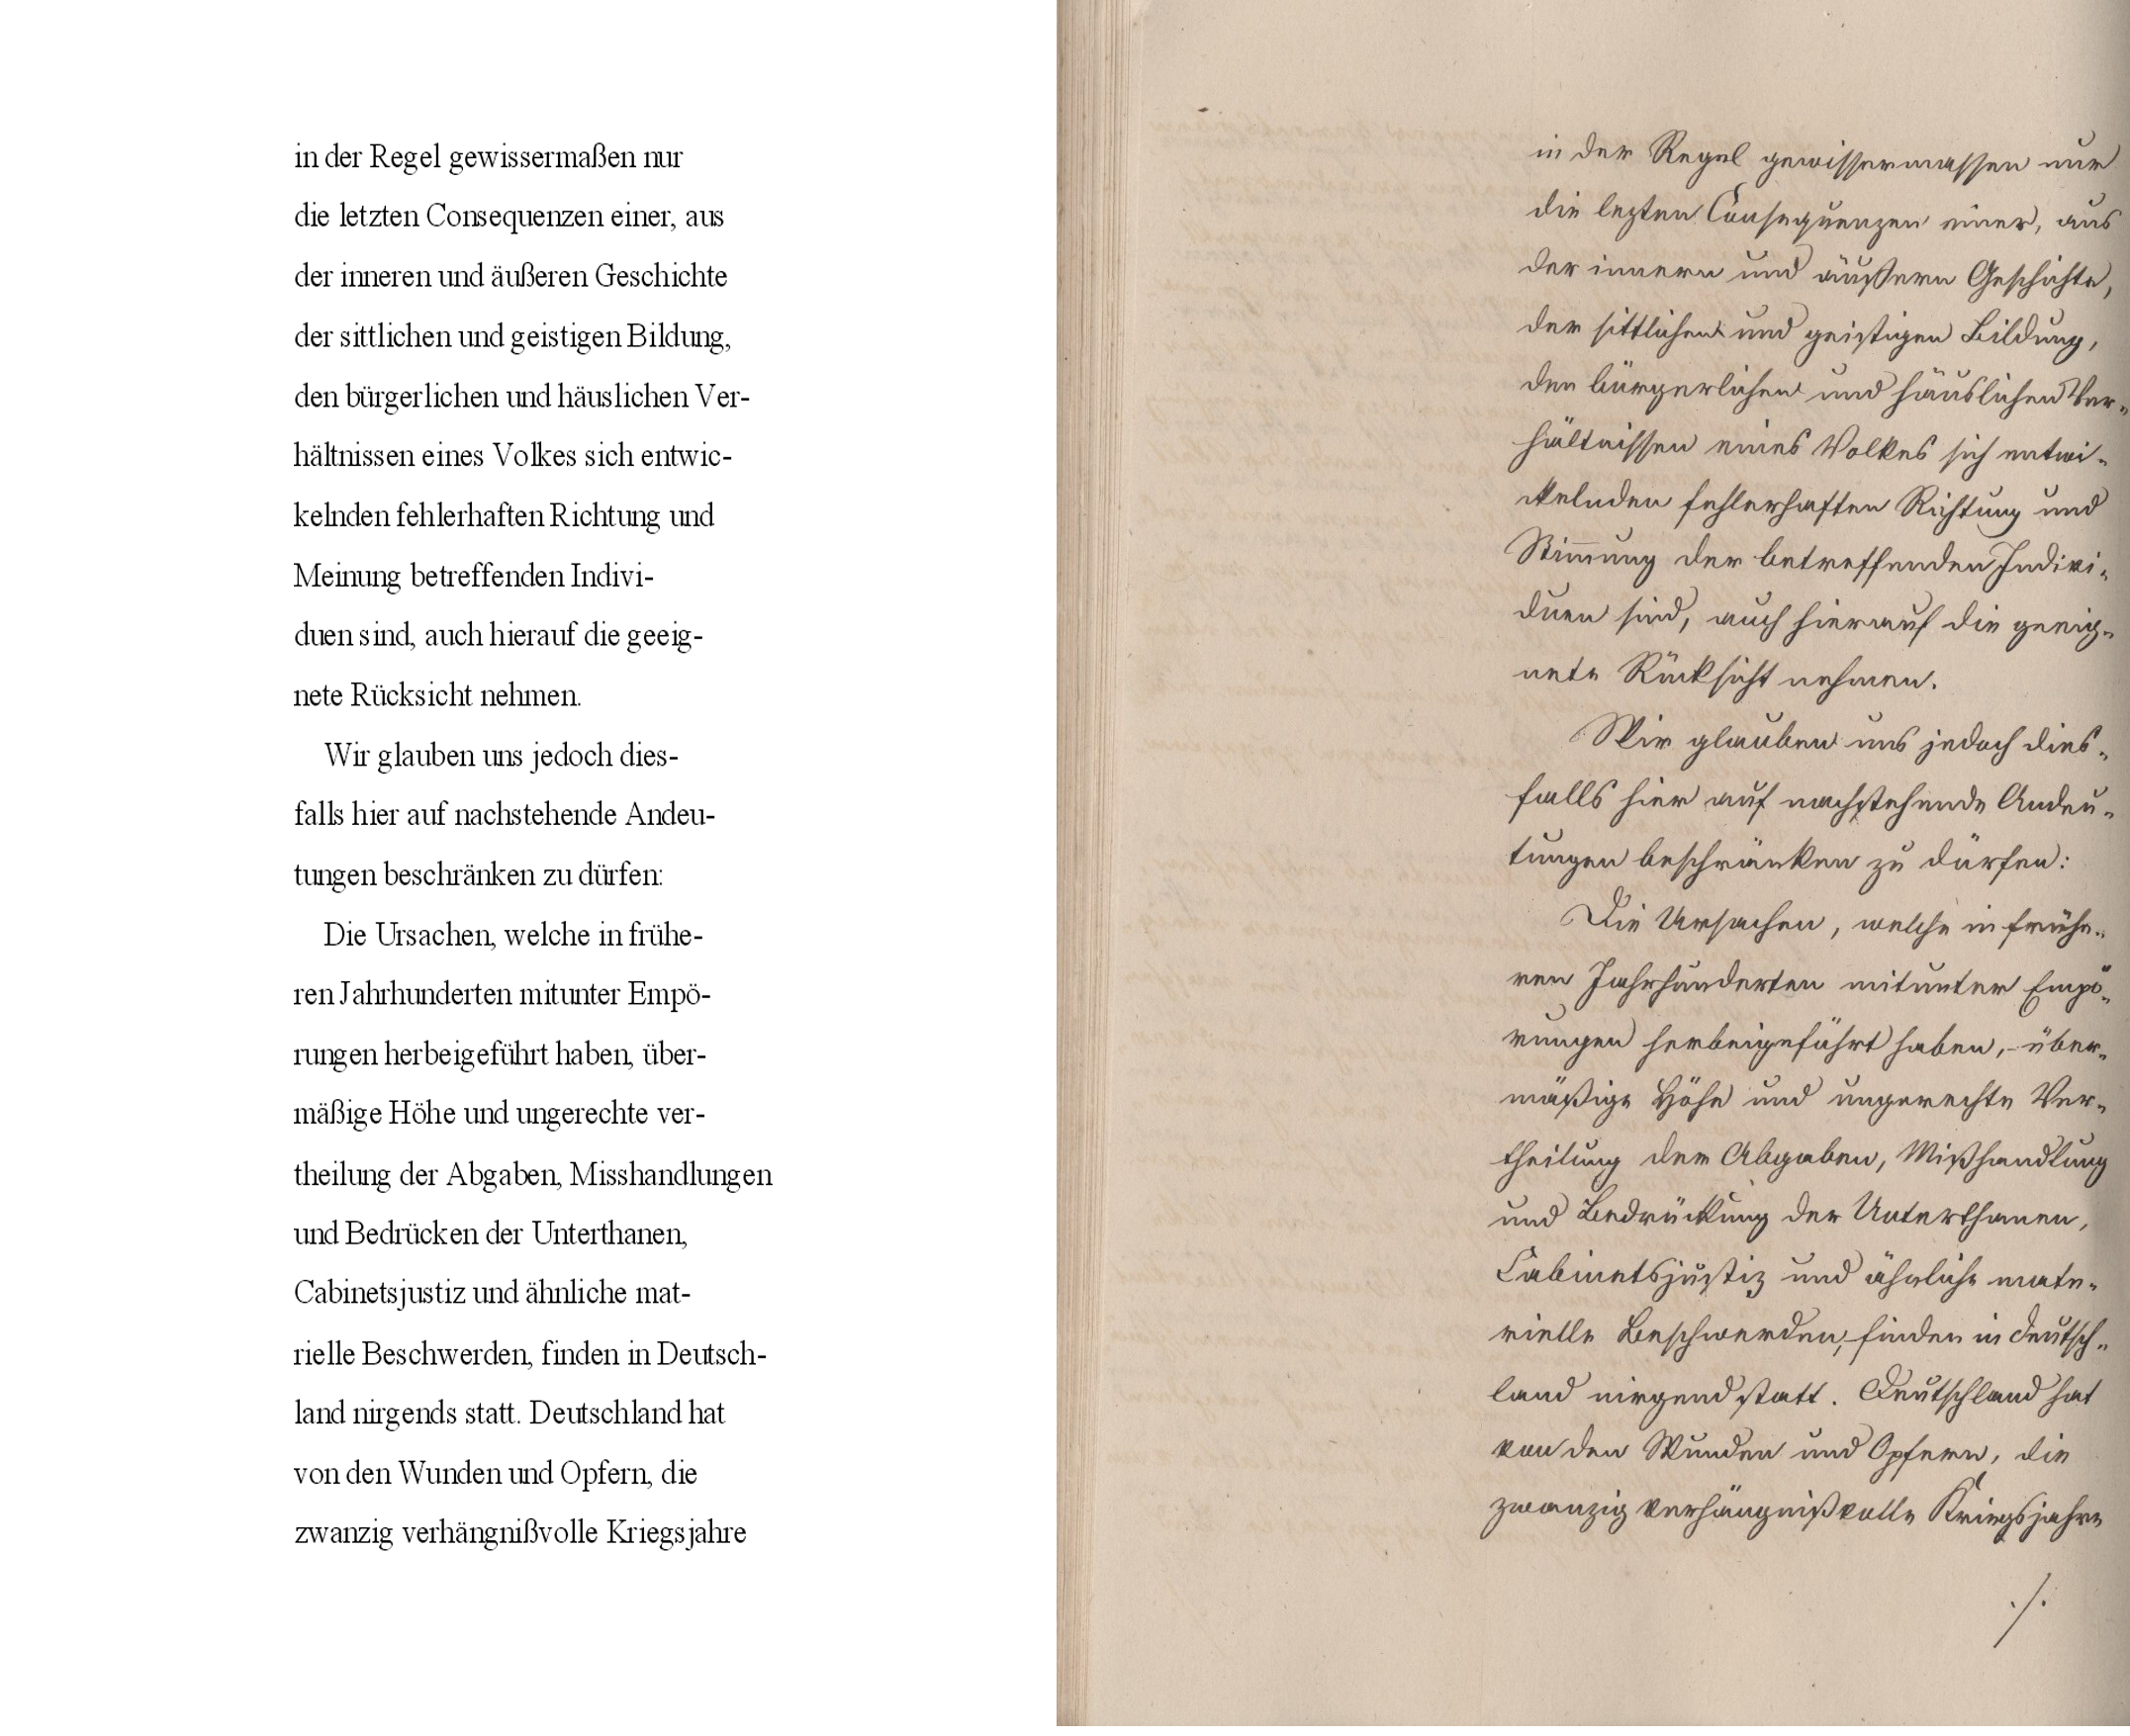 in der Regel gewissermaßen nur
die letzten Consequenzen einer, aus
der inneren und äußeren Geschichte
der sittlichen und geistigen Bildung,
den bürgerlichen und häuslichen Ver-
hältnissen eines Volkes sich entwic-
kelnden fehlerhaften Richtung und
Meinung betreffenden Indivi-
duen sind, auch hierauf die geeig-
nete Rücksicht nehmen.
Wir glauben uns jedoch dies-
falls hier auf nachstehende Andeu-
tungen beschränken zu dürfen:
Die Ursachen, welche in frühe-
ren Jahrhunderten mitunter Empö-
rungen herbeigeführt haben, über-
mäßige Höhe und ungerechte ver-
theilung der Abgaben, Misshandlungen
und Bedrücken der Unterthanen,
Cabinetsjustiz und ähnliche mat-
rielle Beschwerden, finden in Deutsch-
land nirgends statt. Deutschland hat
von den Wunden und Opfern, die
zwanzig verhängnißvolle Kriegsjahre
in der Regel gewissermassen nur
die lezten Consequenzen einer, aus
der innern und äußern Geschichte,
der sittlichen und geistigen Bildung,
den bürgerlichen und häuslichen Ver-
hältnissen eines Volkes sich entwi-
ckelnden fehlerhaften Richtung und
Stimmung der betreffenden Indivi-
duen sind, auch hierauf die geeig-
nete Rücksicht nehmen.
Wir glauben uns jedoch dies-
falls hier auf nachstehende Andeu-
tungen beschränken zu dürfen:
Die Ursachen, welche in frühe-
ren Jahrhunderten mitunter Empö-
rungen herbeigeführt haben, - über-
mäßige Höhe und ungerechte Ver-
theilung der Abgaben, Mißhandlung
und Bedrückung der Unterthanen,
Cabinetsjustiz und ähnliche mate-
rielle Beschwerden, finden in Deutsch-
land nirgend statt. Deutschland hat
von den Wunden und Opfern, die
zwanzig verhängnißvolle Kriegsjahre
./.